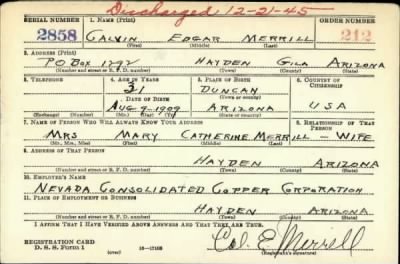 Discharged 12-21-45
SERIAL NUMBER 1. NAME (Print) ORDER NUMBER
2858 CALVIN EDGAR MERRILL 212
(First) (Middle) (Last)
2. ADDRESS (Print)
PO BOX 1292 HAYDEN GILA ARIZONA
(Number and street or R. F. D. number) (Town) (County) (State)
3. TELEPHONE 4. AGE IN YEARS 5. PLACE OF BIRTH 6. COUNTRY OF CITIZENSHIP
31 DUNCAN
(Town or county)
DATE OF BIRTH
AUG 9-1909 ARIZONA USA
(Exchange) (Number) (Mo.) (Day) (Yr.) (State or country)
7. NAME OF PERSON WHO WILL ALWAYS KNOW YOUR ADDRESS 8. RELATIONSHIP OF THAT PERSON
MRS MARY CATHERINE MERRILL - WIFE
(Mr., Mrs., Miss) (First) (Middle) (Last)
9. ADDRESS OF THAT PERSON
HAYDEN ARIZONA
(Number and street or R. F. D. number) (Town) (County) (State)
10. EMPLOYER'S NAME
NEVADA CONSOLIDATED COPPER CORPORATION
11. PLACE OF EMPLOYMENT OR BUSINESS
HAYDEN ARIZONA
(Number and street or R. F. D. number) (Town) (County) (State)
I AFFIRM THAT I HAVE VERIFIED ABOVE ANSWERS AND THAT THEY ARE TRUE.
REGISTRATION CARD
D. S. S. Form 1 (over) Cal. E Merrill
(Registrant's signature)